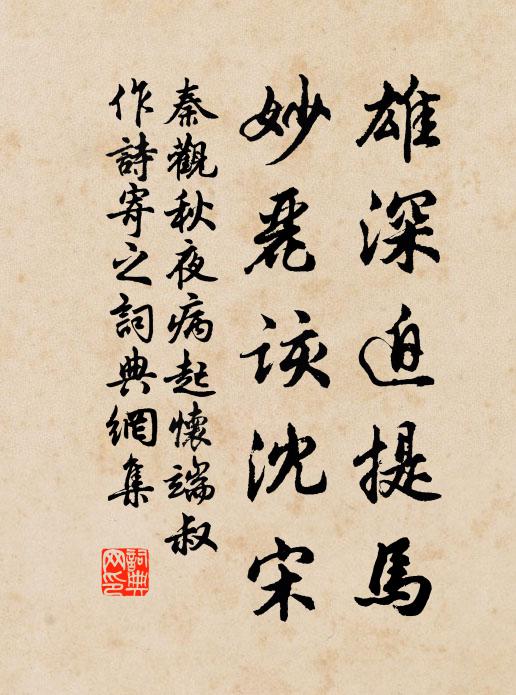 雄深迫提馬
妙麗該沈宋
秦觀秋夜病起懷端叔
作詩寄之詞典網集
詞典
网印